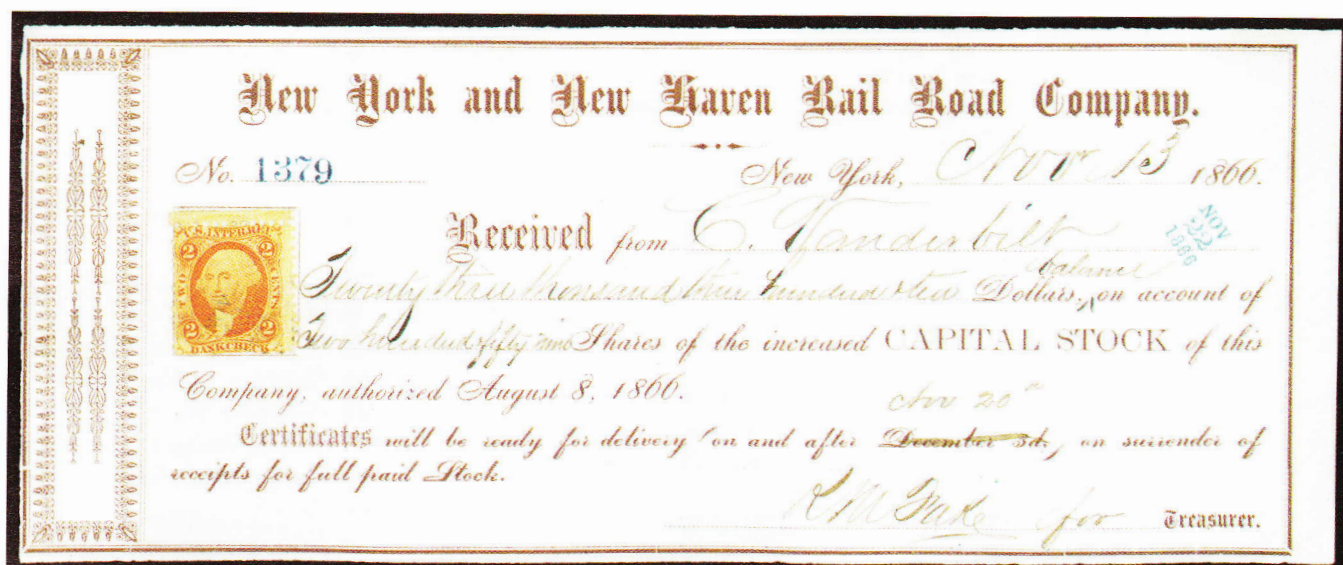 New York and New Haven Rail Road Company.
No. 1379 New York, Nov 13 1866.
U.S. INTER. REV. 2 2 TWO CENTS 2 2 BANK CHECK
Received from C. Vanderbilt
NOV 22 1866
balance
Twenty three thousand three hundred & ten Dollars, on account of
Two hundred fifty nine Shares of the increased CAPITAL STOCK of this
Company, authorized August 8, 1866.
Nov 20th
Certificates will be ready for delivery on and after December 3d, on surrender of
receipts for full paid Stock.
for Treasurer.